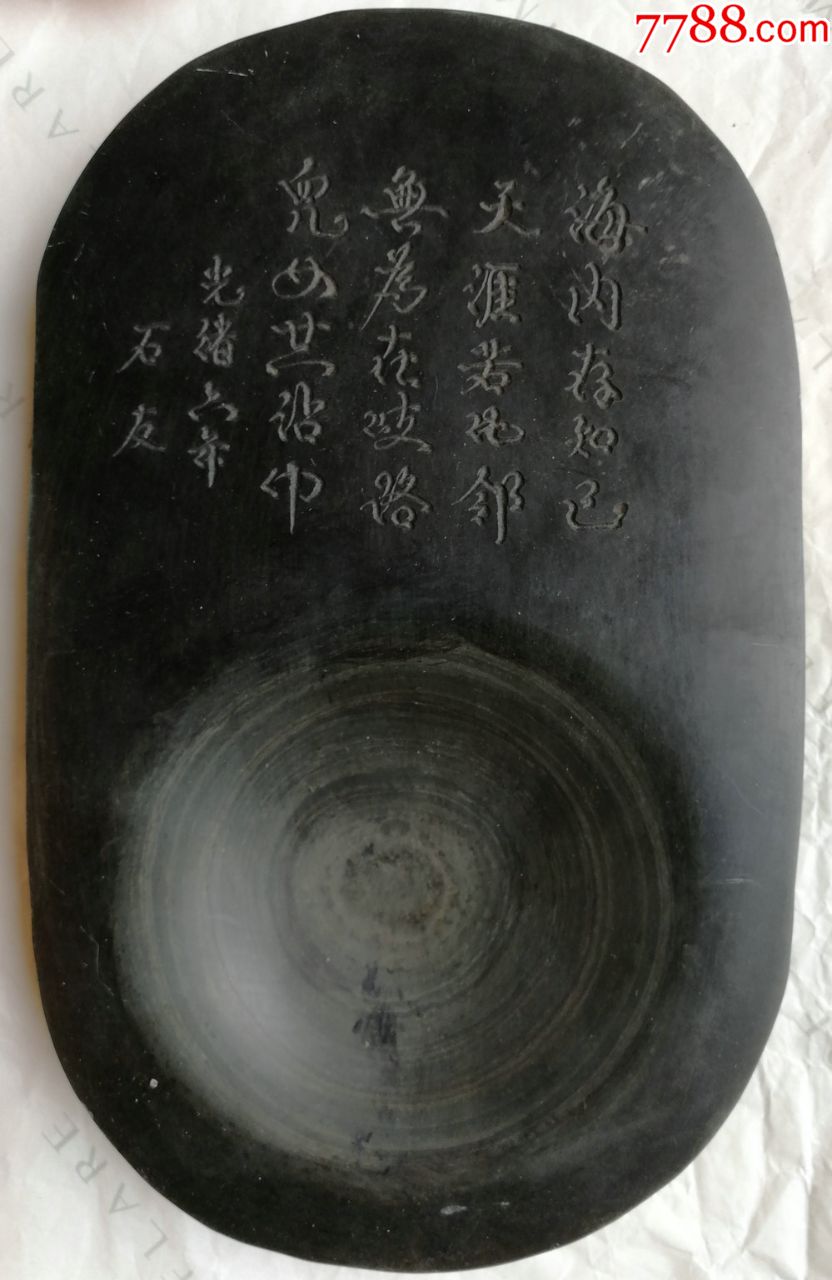 7788.com
海内存知己
天涯若比邻
無為在歧路
兒女共沾巾
光绪六年
石友